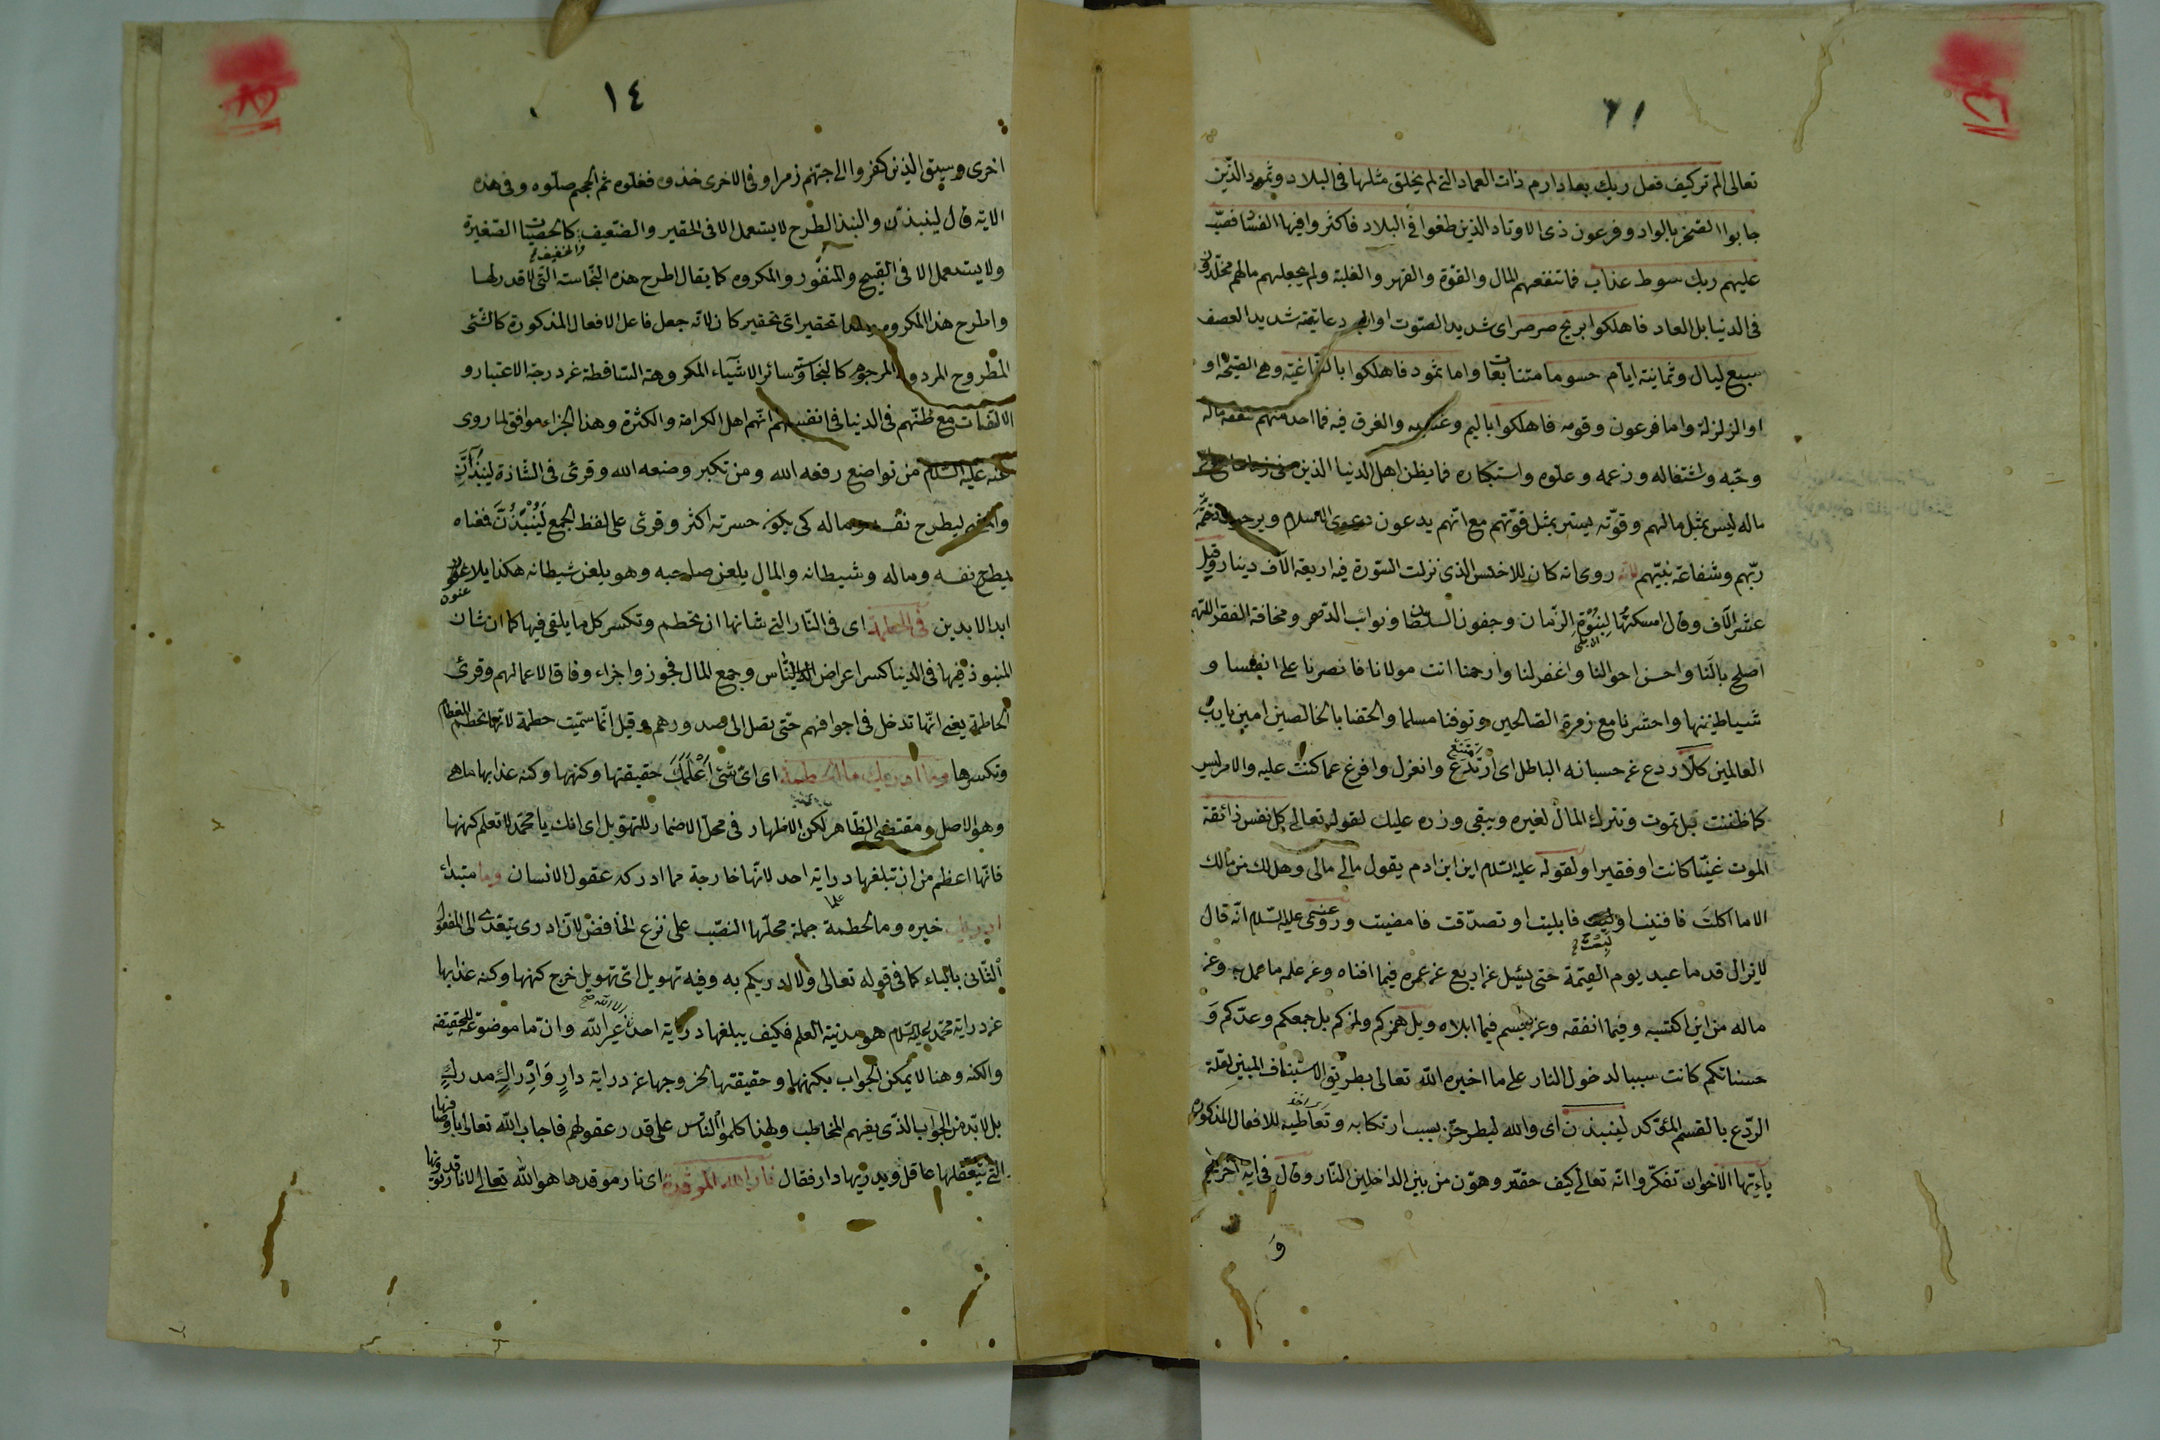 ٦١
تعالى الم تر كيف فعل ربك بعاد ارم ذات العماد التى لم يخلق مثلها فى البلاد وثمود الذين
جابوا الصخر بالواد وفرعون ذى الاوتاد الذين طغوا فى البلاد فاكثروا فيها الفساد فصب
عليهم ربك سوط عذاب فما تنفعهم المال والقوة والقهر والغلبة ولم يجعلهم مالهم مخلدون
فى الدنيا بل العاد فاهلكوا بريح صرصر اى شديد الصوت او البرد عاتية شديد العصف
سبع ليال وثمانية ايام حسوما متتابعات واما ثمود فاهلكوا بالطاغية وهى الصيحة او
او الزلزلة واما فرعون وقومه فاهلكوا باليم والغرق فيه فما احد منهم نفعه ماله
وحبه واشتغاله وزعمه وعلوه واستكباره فما يظن اهل الدنيا الذين
ماله ليس بمثل مالهم وقوته ليس بمثل قوتهم مع انهم يدعون دعوى الاسلام
ربهم وشفاعة نبيهم روى انه كان للاخنس الذى نزلت السورة فيه اربعة آلاف دينار وقيل
عشر آلاف وقال امسكتها لنبوة الزمان وجفون السلطان ونوائب الدهر ومخافة الفقر اللهم
اصلح بالنا واحسن احوالنا واغفر لنا وارحمنا انت مولانا فانصرنا على انفسنا و
شياطيننها واحشرنا مع زمرة الصالحين وتوفنا مسلما والحقنا بالخالصين امين يا رب
العالمين كلا ردع عن حسبانه الباطل اى ارتدع وانعزل وافرغ عما كنت عليه والامر ليس
كما ظننت بل تموت وتترك المال لغيره ويبقى وزره عليك لقوله تعالى كل نفس ذائقة
الموت غنيا كانت او فقيرا ولقوله عليه السلام اين ابن ادم يقول مالى مالى وهل لك من مالك
الا ما اكلت فافنيت او لبست فابليت او تصدقت فامضيت وروى عنه عليه السلام انه قال
لا تزال قدما عبد يوم القيمة حتى يسئل عن اربع عن عمره فيما افناه وعن علمه ما عمل به وعن
ماله من اين اكتسبه وفيما انفقه وعن جسم فيما ابلاه ويل همزكم ولمزكم بل جمعكم وعدكم و
حسناتكم كانت سببا لدخول النار على ما اخبره الله تعالى بطريق الاستيناف المبين لعلة
الردع بالقسم المؤكد لينبذن اى والله ليطرحن بسبب ارتكابه وتعاطيه للافعال المذكورة
يا ايتها الاخوان تفكروا انه تعالى كيف حقر وهون من بين الداخلين النار وقال فى اية اخرى
و
١٤
اخرى وسيق الذين كفروا الى جهنم زمرا وفى الاخرى خذوه فغلوه ثم الجحيم صلوه وفى هذه
الاية قال لينبذن والنبذ الطرح لا يستعمل الا فى الحقير والضعيف كالحصيات الصغيرة
والخفيفة
ولا يستعمل الا فى القبيح والمنفور والمكروه كما يقال اطرح هذه النجاسة التى لا قدر لها
واطرح هذا المكروه تحقيرا اى تحقير كان لانه جعل فاعل الافعال المذكورة كالشئ
المطروح المردود المرجو كالنجاسة وسائر الاشياء المكروهة الساقطة عن درجة الاعتبار و
الالتفات مع ظنهم فى الدنيا فى انفسهم انهم اهل الكرامة والكثرة وهذا الجزاء موافق لما روى
عنه عليه السلام من تواضع رفعه الله ومن تكبر وضعه الله وقرئ فى الشاذة لينبذان
ليطرح نفسه وماله كى يكون حسرته اكثر وقرئ على لفظ الجمع لينبذن فمعناه
ليطرح نفسه وماله وشيطانه والمال يلعن صاحبه وهو يلعن شيطانه هكذا يلاعنون
ابد الابدين فى الحطمة اى فى النار التى شانها ان تحطم وتكسر كل ما يلقى فيها كما ان شان
المنبوذ فيها فى الدنيا كسر اعراض الناس وجمع المال فجوزوا جزاء وفاقا لاعمالهم وقرئ
الحاطمة يعنى انها تدخل فى اجوافهم حتى تصل الى صدورهم وقيل انما سميت حطمة لانها تحطم العظام
وتكسرها وما ادريك ما الحطمة اى اى شئ اعلمك حقيقتها وكنهها وكنه عذابها ما هى
وهو الاصل ومقتضى الظاهر لكن الاظهار فى محل الاضمار للتهويل اى انك يا محمد لا تعلم كنهها
فانها اعظم من ان تبلغها دراية احد لانها خارجة مما ادركه عقول الانسان وما مبتداء
ادريك خبره وما الحطمة جملة محلها النصب على نزع الخافض لان ادرى يتعدى الى المفعول
الثانى بالباء كما فى قوله تعالى ولا ادريكم به وفيه تهويل اى تهويل خرج كنهها وكنه عذابها
عن دراية محمد عليه السلام هو مدينة العلم فكيف يبلغها دراية احد غير الله وان ما موضوعة للحقيقة
والكنه وهنا لا يمكن الجواب بكنهها وحقيقتها لخروجها عن دراية دار وادراك مدرك
بل لا بد من الجواب الذى يفهم المخاطب ولهذا كلموا الناس على قدر عقولهم فاجاب الله تعالى باوصافها
التى يتعقلها عاقل ويدريها دار فقال نار الله الموقدة اى نار موقدها هو الله تعالى لا نار توقدونها